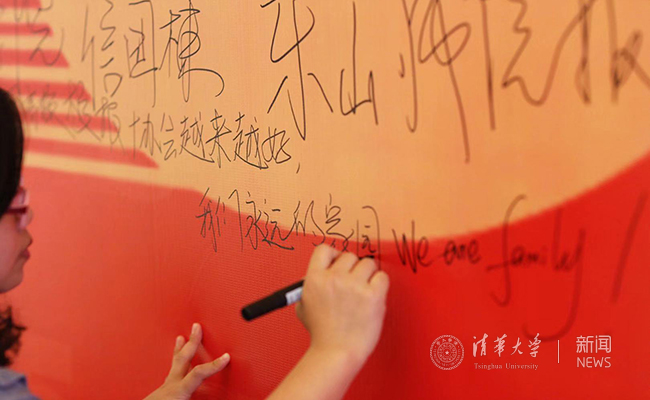 乐山师院报
协会越来越好,
我们永远的家园 We are family!
清华大学
Tsinghua University
新闻
NEWS